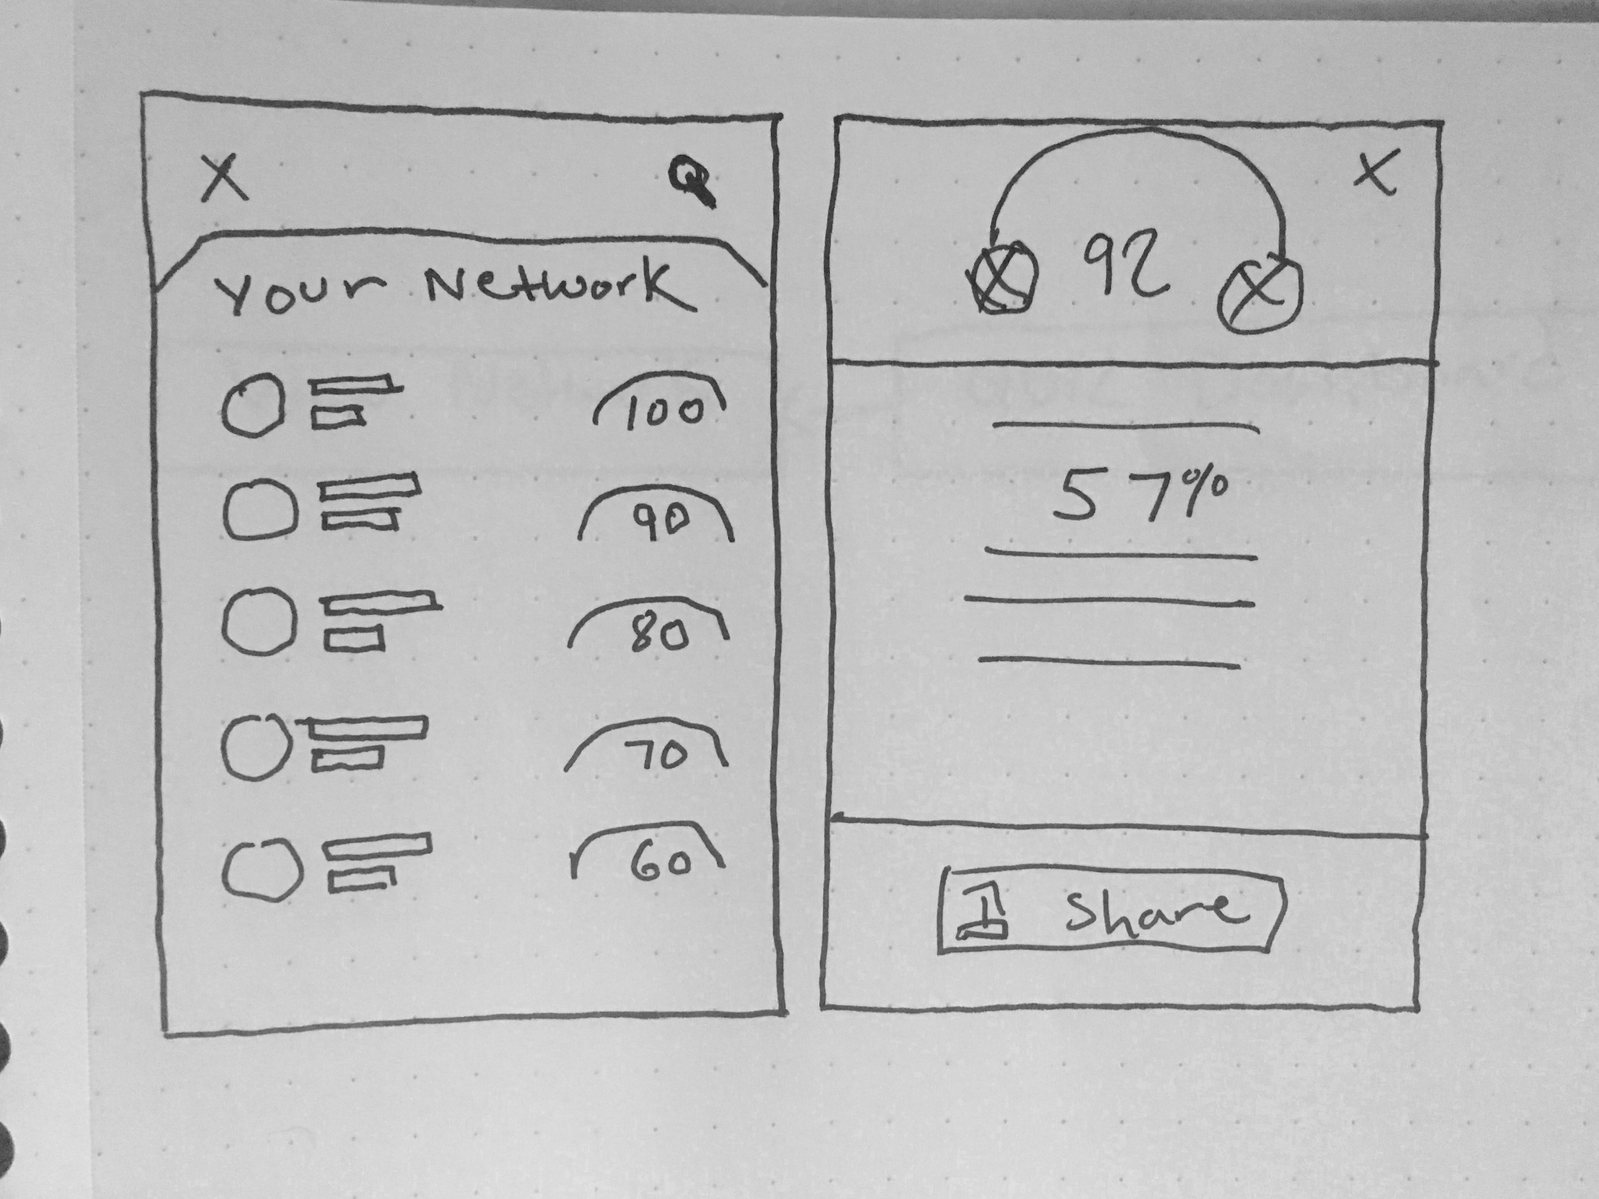 X
Your Network
100
90
80
70
60
X
92
57%
Share